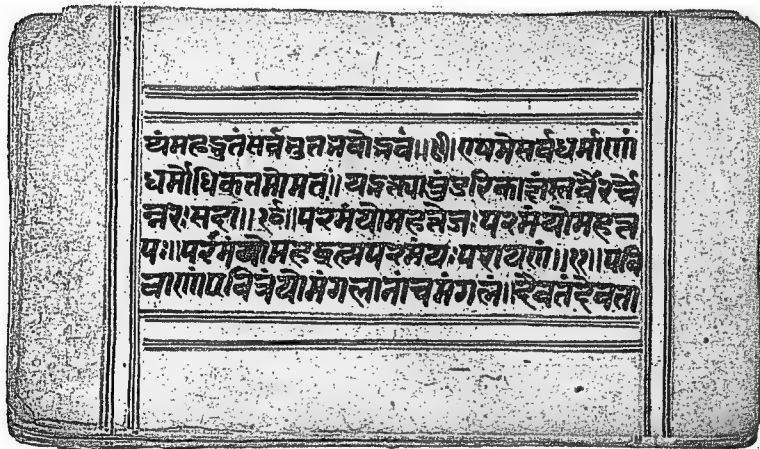 यंमहद्भुतंसर्वभुतभवोद्भवं॥८॥एषमेसर्वधर्माणां
धर्मोधिकतमोमतः॥यद्भक्त्यापुंडरिकाक्षंस्तवैरर्चे
न्नरःसदा॥९॥परमंयोमहत्तेजःपरमंयोमहत्त
पः॥परमंयोमहद्ब्रह्मपरमंयःपरायणं॥१०॥पवि
त्राणांपवित्रंयोमंगलानांचमंगलं॥दैवतंदेवता